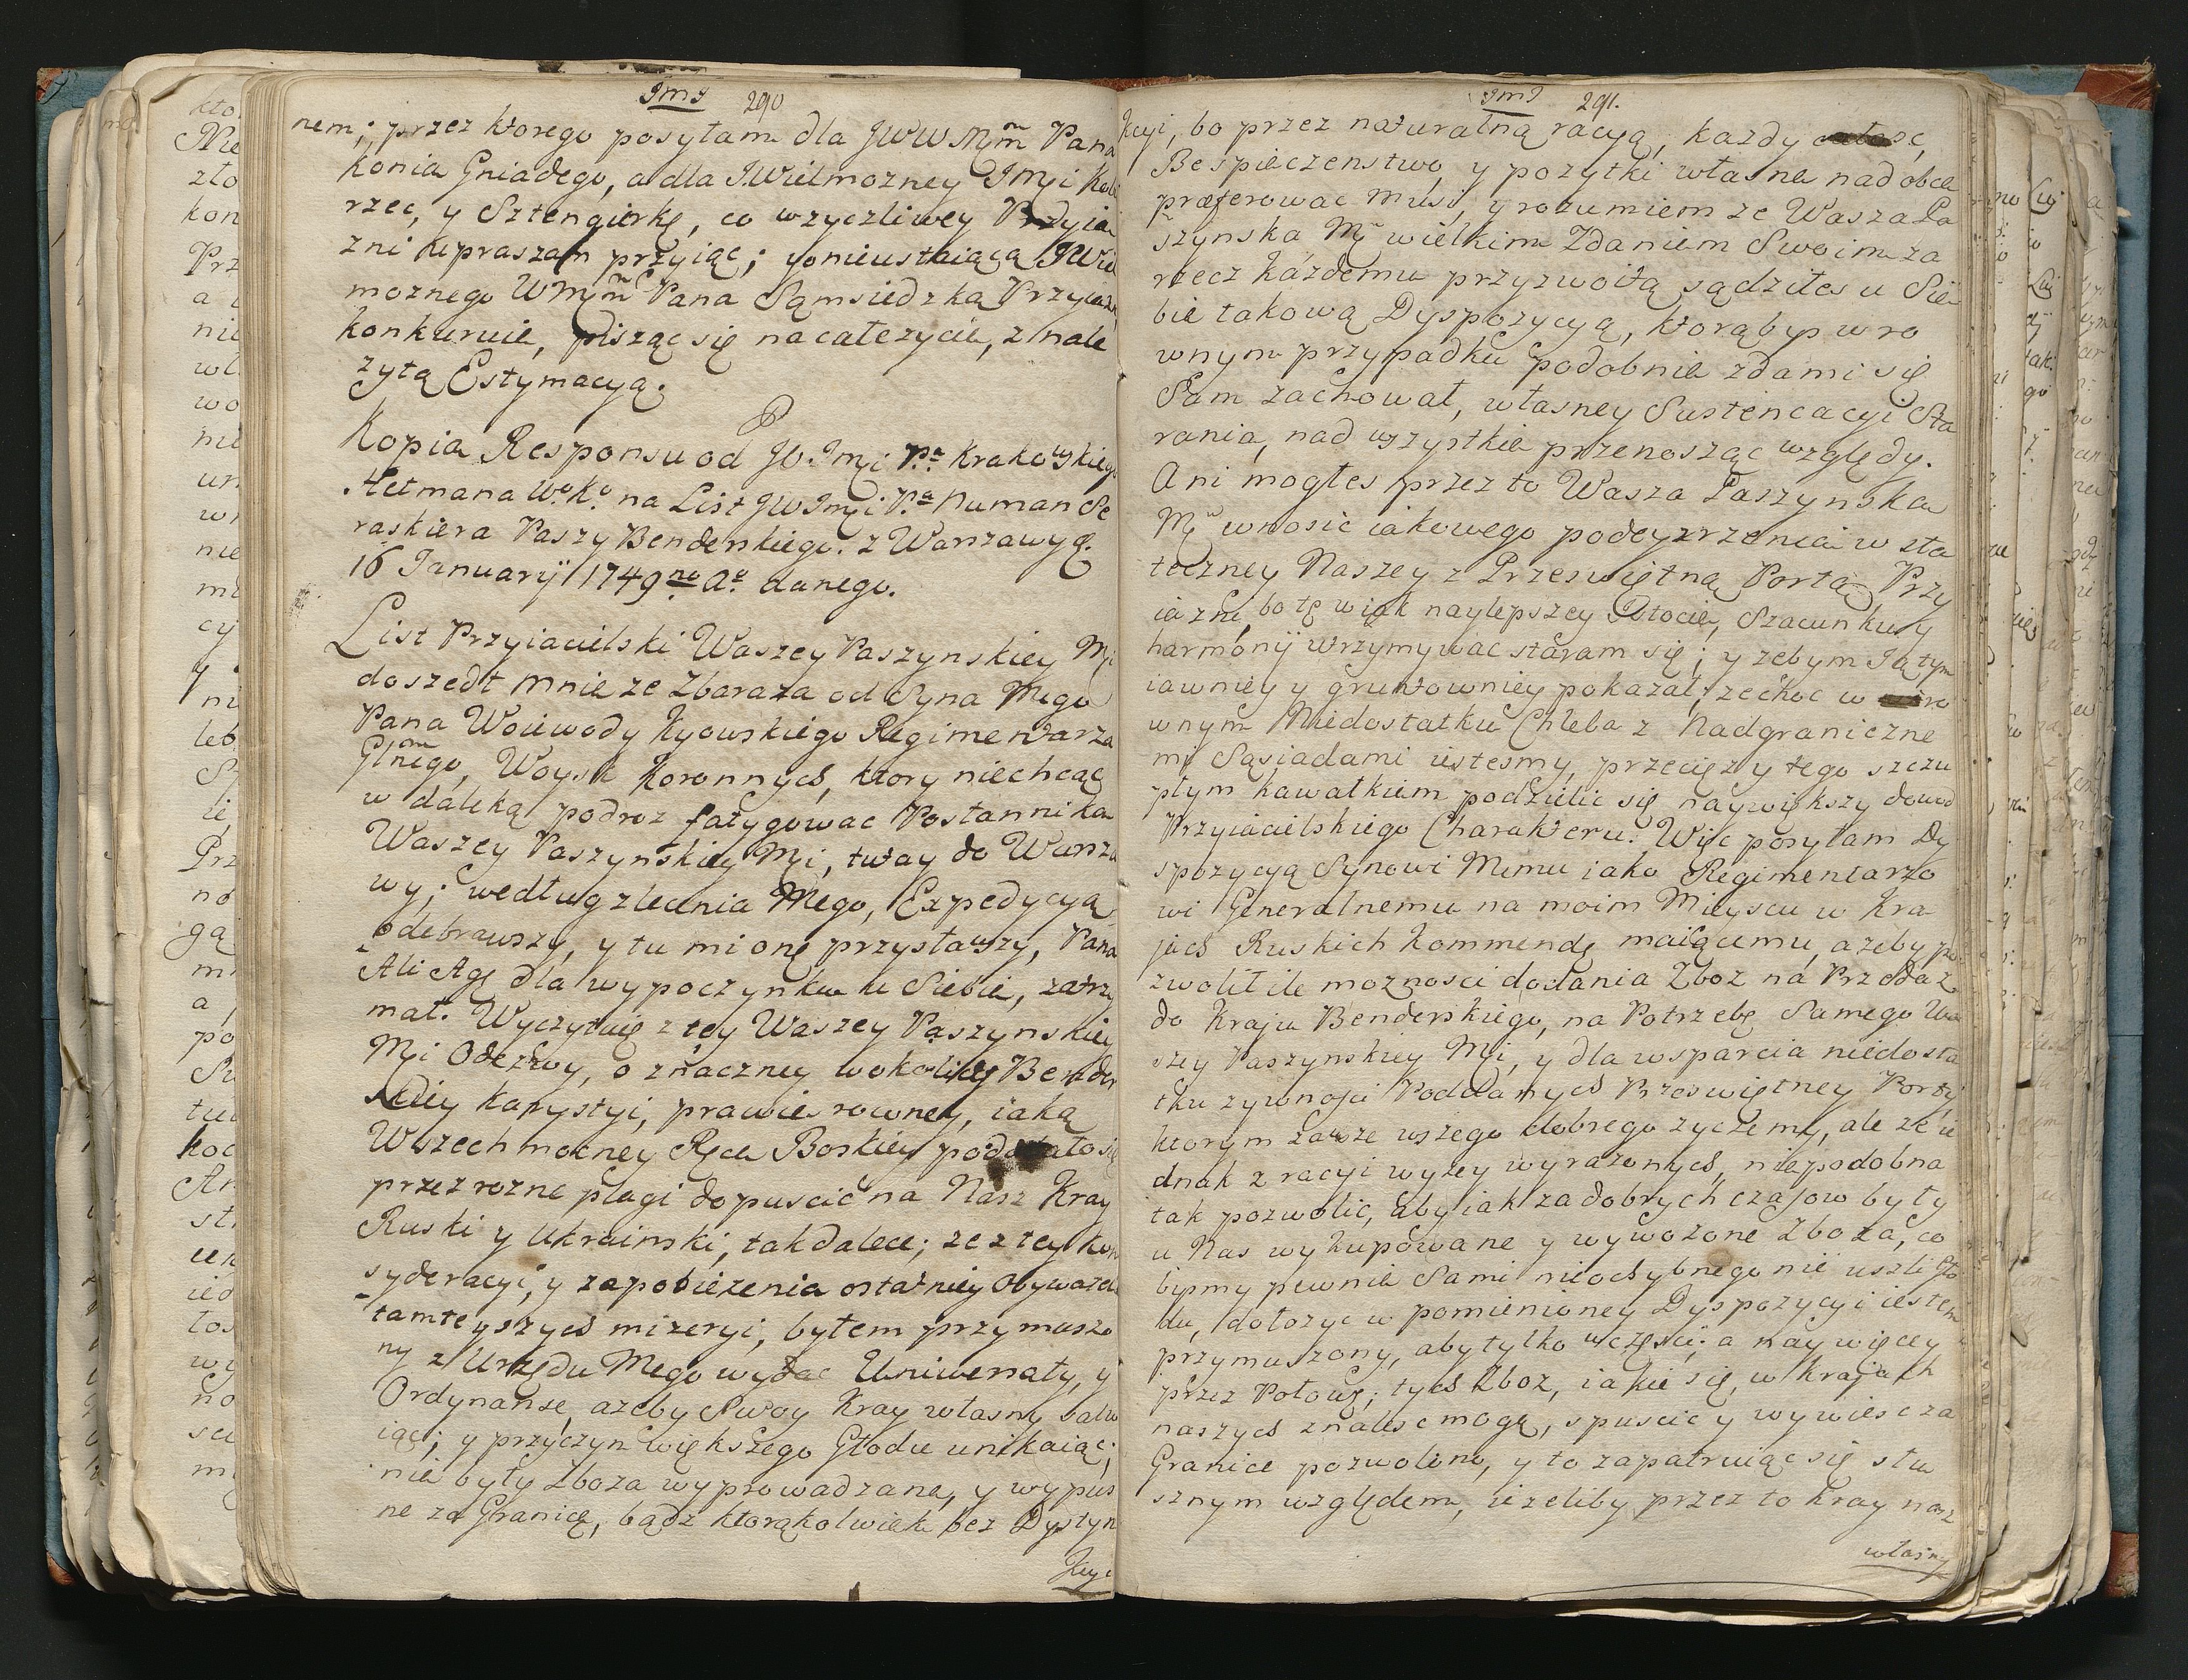 JmJ 290
nem; przez ktorego posyłam dla JWWMym Pana
konia Gniadego, a dla JWielmozney Jmci Kobi
rzec, y Sztengierkę, co wzyczliwey Przyia
zni upraszam przyiąc; y onieustaiącą JWiel
moznego WMym Pana Sąmsiedzką Przyiazn
konkuruie, pisząc się nacałezycie, z nale
zytą Estymacyą.
Kopia Responsu od JW. Jmci Pa Krakowskiego
Hetmana Wo. Ko. na List JWJmci Pa Numan Se
raskiera Paszy Benderskiego. z Warszawy d.
16 Januarij 1749no Ao danego.
List Przyiacielski Waszey Paszynskiey Mci
doszedł mnie ze Zbaraza od Syna Mego
Pana Woiewody Kyowskiego Regimentarza
Glnego, Woysk Koronnych, ktory niechcąc
w daleką podroz fatygowac Posłannika
Waszey Paszynskiey Mci, tutay do Warsza
wy; według zlecenia Mego, Expedycyą
odebrawszy, y tu mi onę przysławszy, Pana
Ali Agę dla wypoczynku u Siebie, zatrzy
mał. Wyczytuię z tey Waszey Paszynskiey
Mci Odezwy, o znaczney wokolicy Bender
skiey karystyi, prawie rowney, iaką
Wszechmocney Ręce Boskiey podobało się
przez rozne plagi dopuscic na Nasz Kray
Ruski y Ukrainski, takdalece; ze z tey kon
syderacyi, y zapobiezenia ostatniey Obywatelow
tamteyszych mizeryi, byłem przymuszo
ny z Urzędu Mego wydac Uniwersały, y
Ordynanse, azeby Swoy Kray własny salwu
iąc; y przyczyn większego Głodu unikaiąc;
nie były Zboza wyprowadzane, y wypus
ne za Granicę, bądz ktorąkolwiek bez Dystyn
kcyi
JmJ 291.
kcyi, bo przez naturalną racyą, kazdy całosc,
Bespieczenstwo, y pozytki własne nad obce
præferowac musi, y rozumiem ze Wasza Pa
szynska Mc wielkim Zdaniem Swoim za
rzecz kazdemu przyzwoitą sądziłes u Sie
bie takową Dyspozycyą, ktorąbys w ro
wnym przypadku podobnie zdami się
Sam zachował, własney Sustentacyi Sta
rania, nad wszystkie przenosząc względy.
Ani mogłes przez to Wasza Paszynska
Mc wnosic iakowego podeyzrzenia w sta
teczney Naszey z Przeswiętną Portą Przy
iazni, bo tę w iak naylepszey Istocie, Szacunku y
harmonij utrzymywac staram się; y zebym Ią tym
iawniey y gruntowniey pokazał; ze choc w ro
wnym Niedostatku Chleba z Nadgraniczne
mi Sąsiadami iestesmy, przeciez y tego szczu
płym kawałkiem podzielic się naywiększy dowod
Przyiacielskiego Charakteru: Więc posyłam Dy
spozycyą Synowi Memu iako Regimentarzo
wi Generalnemu na moim Mieyscu w Kra
jach Ruskich kommendę maiącemu, azeby po
zwolił ile moznosci dodania Zboz na Przedaz
do Kraju Benderskiego, na Potrzebę Samego Wa
szey Paszynskiey Mci, y dla wsparcia niedosta
tku zywnosci Poddanych Przeswiętney Porty
ktorym zawsze wszego dobrego zyczemy, ale ze ie
dnak z racyi wyzey wyrazonych, niepodobna
tak pozwolic, aby iak za dobrych czasow były
u Nas wykupowane y wywozone Zboza, co
bysmy pewnie Sami nieochybnego nie uszli Gło
du, dołozyc w pomienioney Dyspozycyi iestem
przymuszony, aby tylko w częsci; a naywięcey
przez Połowę; tych Zboz, iakie się w krajach
naszych znalesc mogą, spuscic y wywiesc za
Granice pozwolono, y to zapatruiąc się słu
sznym względem, iezeliby przez to Kray nasz
własny